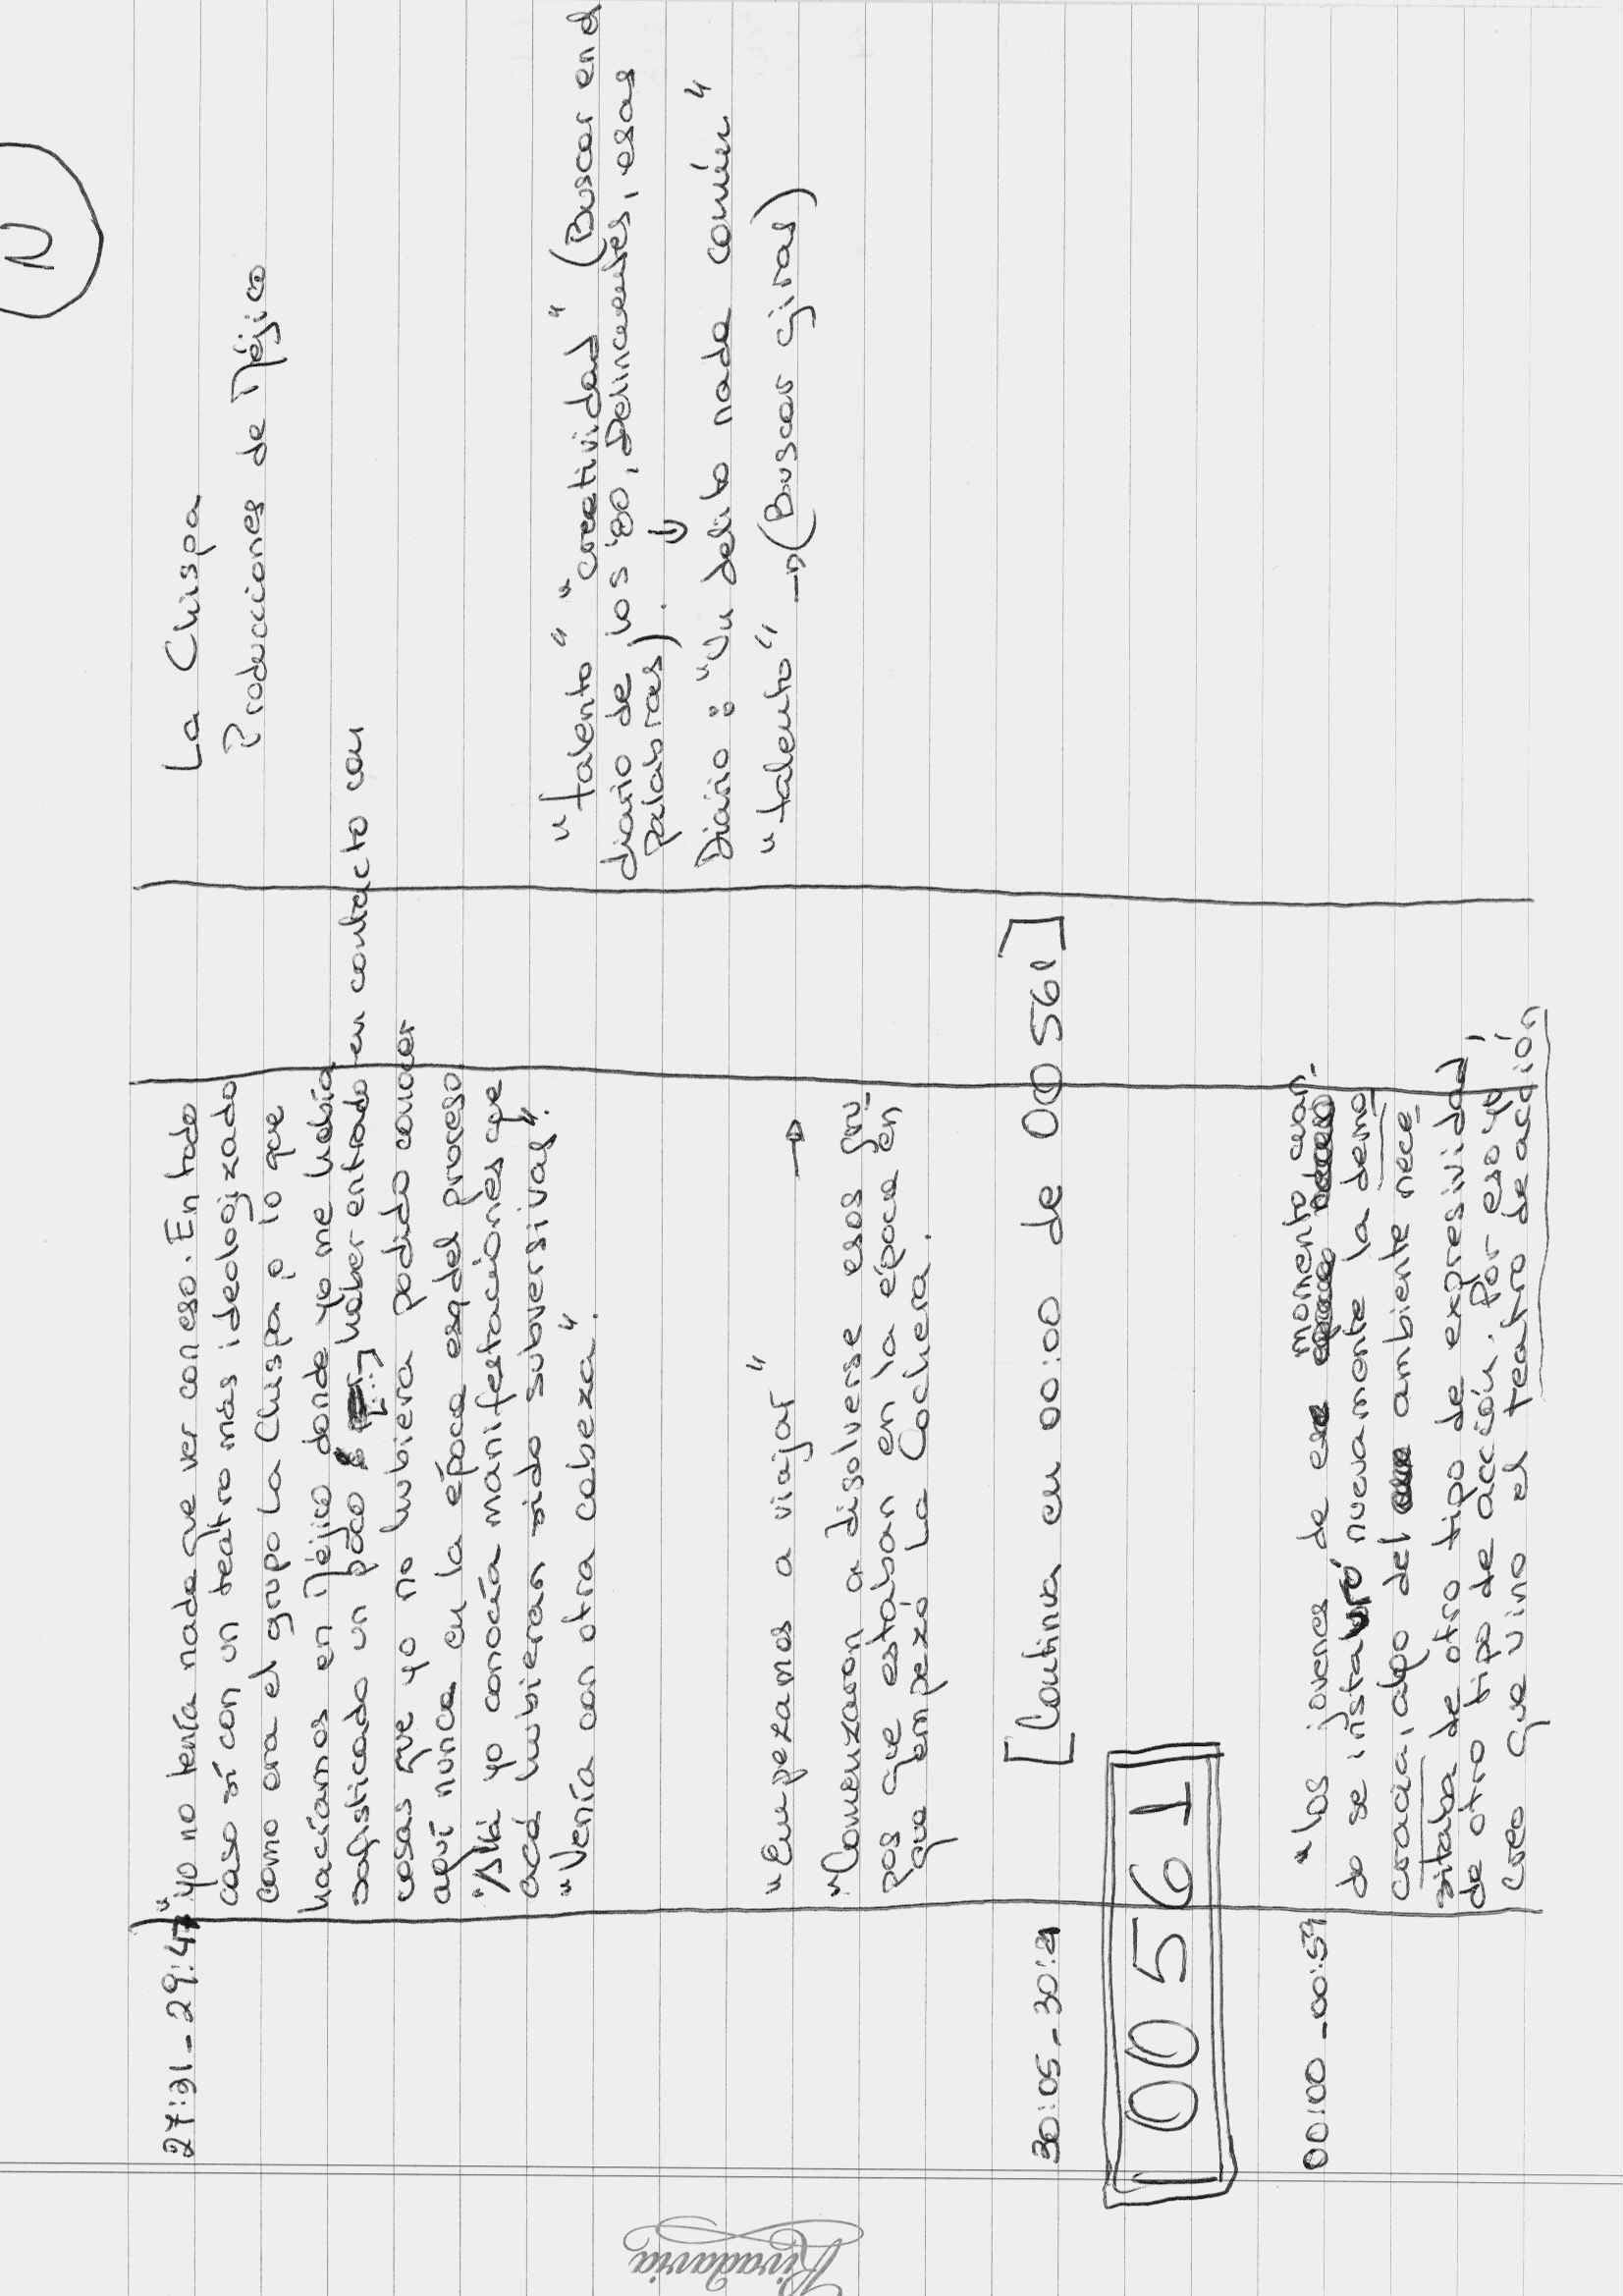 N
27:31 - 29:47
"yo no tenía nada que ver con eso. En todo
caso sí con un teatro más ideologizado
como era el grupo La Chispa, o lo que
hacíamos en Méjico donde yo me había
sofisticado un poco [...] haber entrado en contacto con
cosas que yo no hubiera podido conocer
aquí nunca en la época esa del proceso
"Allá yo conocía manifestaciones que
acá hubieran sido subversivas".
"Venía con otra cabeza".
La Chispa
Producciones de Méjico
"Empezamos a viajar"
"Comenzaron a disolverse esos gru-
pos que estaban en la época en
que empezó La Cochera.
→
"talento" "creatividad" (Buscar en el
diario de los '80, Delincuentes, esas
palabras). ↓
Diario: "Un delito nada común"
"talento" → (Buscar giras)
30:05 - 30:21
[Continua en 00:00 de 00561]
00561
00:00 - 00:59
"los jóvenes de ese momento cuan-
do se instauró nuevamente la demo
cracia, algo del ambiente nece
sitaba de otro tipo de expresividad,
de otro tipo de acción. Por eso yo
creo que vino el teatro de acción
Rivadavia